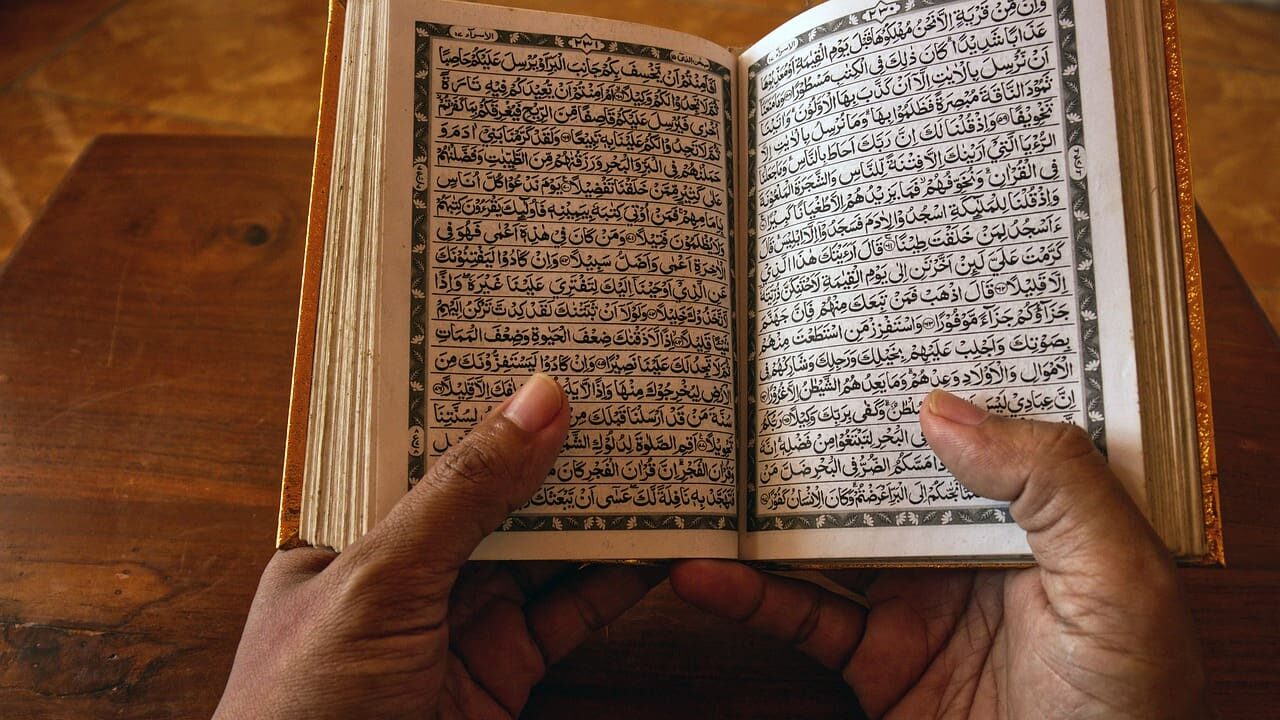 ٢٣٠
وَاِنْ مِّنْ قَرْيَةٍ اِلَّا نَحْنُ مُهْلِكُوْهَا قَبْلَ يَوْمِ الْقِيٰمَةِ اَوْ مُعَذِّبُوْهَا
عَذَابًا شَدِيْدًا ؕ كَانَ ذٰلِكَ فِى الْكِتٰبِ مَسْطُوْرًا ﴿٥٨﴾ وَمَا مَنَعَنَاۤ
اَنْ نُّرْسِلَ بِالْاٰيٰتِ اِلَّاۤ اَنْ كَذَّبَ بِهَا الْاَوَّلُوْنَ ؕ وَاٰتَيْنَا
ثَمُوْدَ النَّاقَةَ مُبْصِرَةً فَظَلَمُوْا بِهَا ؕ وَمَا نُرْسِلُ بِالْاٰيٰتِ اِلَّا
تَخْوِيْفًا ﴿٥٩﴾ وَاِذْ قُلْنَا لَكَ اِنَّ رَبَّكَ اَحَاطَ بِالنَّاسِ ؕ وَمَا جَعَلْنَا
الرُّءْيَا الَّتِىْۤ اَرَيْنٰكَ اِلَّا فِتْنَةً لِّلنَّاسِ وَالشَّجَرَةَ الْمَلْعُوْنَةَ
فِى الْقُرْاٰنِ ؕ وَنُخَوِّفُهُمْ ۙ فَمَا يَزِيْدُهُمْ اِلَّا طُغْيَانًا كَبِيْرًا ﴿٦٠﴾
وَاِذْ قُلْنَا لِلْمَلٰٓئِكَةِ اسْجُدُوْا لِاٰدَمَ فَسَجَدُوْۤا اِلَّاۤ اِبْلِيْسَ ؕ قَالَ
ءَاَسْجُدُ لِمَنْ خَلَقْتَ طِيْنًا ﴿٦١﴾ قَالَ اَرَءَيْتَكَ هٰذَا الَّذِىْ
كَرَّمْتَ عَلَىَّ لَئِنْ اَخَّرْتَنِ اِلٰى يَوْمِ الْقِيٰمَةِ لَاَحْتَنِكَنَّ ذُرِّيَّتَهٗۤ
اِلَّا قَلِيْلًا ﴿٦٢﴾ قَالَ اذْهَبْ فَمَنْ تَبِعَكَ مِنْهُمْ فَاِنَّ جَهَنَّمَ
جَزَآؤُكُمْ جَزَآءً مَّوْفُوْرًا ﴿٦٣﴾ وَاسْتَفْزِزْ مَنِ اسْتَطَعْتَ مِنْهُمْ
بِصَوْتِكَ وَاَجْلِبْ عَلَيْهِمْ بِخَيْلِكَ وَرَجِلِكَ وَشَارِكْهُمْ فِى
الْاَمْوَالِ وَالْاَوْلَادِ وَعِدْهُمْ ؕ وَمَا يَعِدُهُمُ الشَّيْطٰنُ اِلَّا غُرُوْرًا ﴿٦٤﴾
اِنَّ عِبَادِىْ لَيْسَ سُلْطٰنٌ ؕ وَكَفٰى بِرَبِّكَ وَكِيْلًا ﴿٦٥﴾ رَبُّكُمُ
فِى الْبَحْرِ لِتَبْتَغُوْا مِنْ فَضْلِهٖ ؕ اِنَّهٗ
مَسَّكُمُ الضُّرُّ فِى الْبَحْرِ ضَلَّ مَنْ
نَجّٰىكُمْ اِلَى الْبَرِّ اَعْرَضْتُمْ ؕ وَكَانَ الْاِنْسَانُ كَفُوْرًا ﴿٦٧﴾
سبحن الذى ١٥ ٢٣١ الاسرآء ١٧
اَفَاَمِنْتُمْ اَنْ يَّخْسِفَ بِكُمْ جَانِبَ الْبَرِّ اَوْ يُرْسِلَ عَلَيْكُمْ حَاصِبًا
ثُمَّ لَا تَجِدُوْا لَكُمْ وَكِيْلًا ﴿٦٨﴾ اَمْ اَمِنْتُمْ اَنْ يُّعِيْدَكُمْ فِيْهِ تَارَةً
اُخْرٰى فَيُرْسِلَ عَلَيْكُمْ قَاصِفًا مِّنَ الرِّيْحِ فَيُغْرِقَكُمْ بِمَا كَفَرْتُمْ ۙ
ثُمَّ لَا تَجِدُوْا لَكُمْ عَلَيْنَا بِهٖ تَبِيْعًا ﴿٦٩﴾ وَلَقَدْ كَرَّمْنَا بَنِىْۤ اٰدَمَ وَ
حَمَلْنٰهُمْ فِى الْبَرِّ وَالْبَحْرِ وَرَزَقْنٰهُمْ مِّنَ الطَّيِّبٰتِ وَفَضَّلْنٰهُمْ
عَلٰى كَثِيْرٍ مِّمَّنْ خَلَقْنَا تَفْضِيْلًا ﴿٧٠﴾ يَوْمَ نَدْعُوْا كُلَّ اُنَاسٍۭ
بِاِمَامِهِمْ ۚ فَمَنْ اُوْتِىَ كِتٰبَهٗ بِيَمِيْنِهٖ فَاُولٰٓئِكَ يَقْرَءُوْنَ كِتٰبَهُمْ
وَلَا يُظْلَمُوْنَ فَتِيْلًا ﴿٧١﴾ وَمَنْ كَانَ فِىْ هٰذِهٖۤ اَعْمٰى فَهُوَ فِى
الْاٰخِرَةِ اَعْمٰى وَاَضَلُّ سَبِيْلًا ﴿٧٢﴾ وَاِنْ كَادُوْا لَيَفْتِنُوْنَكَ
عَنِ الَّذِىْۤ اَوْحَيْنَاۤ اِلَيْكَ لِتَفْتَرِىَ عَلَيْنَا غَيْرَهٗ ۖ وَاِذًا
لَّاتَّخَذُوْكَ خَلِيْلًا ﴿٧٣﴾ وَلَوْلَاۤ اَنْ ثَبَّتْنٰكَ لَقَدْ كِدْتَّ تَرْكَنُ اِلَيْهِمْ
شَيْئًا قَلِيْلًا ﴿٧٤﴾ اِذًا لَّاَذَقْنٰكَ ضِعْفَ الْحَيٰوةِ وَضِعْفَ الْمَمَاتِ
ثُمَّ لَا تَجِدُ لَكَ عَلَيْنَا نَصِيْرًا ﴿٧٥﴾ وَاِنْ كَادُوْا لَيَسْتَفِزُّوْنَكَ مِنَ
الْاَرْضِ لِيُخْرِجُوْكَ مِنْهَا وَاِذًا لَّا خِلٰفَكَ اِلَّا قَلِيْلًا ﴿٧٦﴾
سُنَّةَ مَنْ قَدْ اَرْسَلْنَا قَبْلَكَ مِنْ لِسُنَّتِنَا
تَحْوِيْلًا ﴿٧٧﴾ اَقِمِ الصَّلٰوةَ لِدُلُوْكِ الشَّمْسِ
وَقُرْاٰنَ الْفَجْرِ ؕ اِنَّ قُرْاٰنَ الْفَجْرِ كَانَ
فَتَهَجَّدْ بِهٖ نَافِلَةً لَّكَ ۖ عَسٰىۤ اَنْ يَّبْعَثَكَ